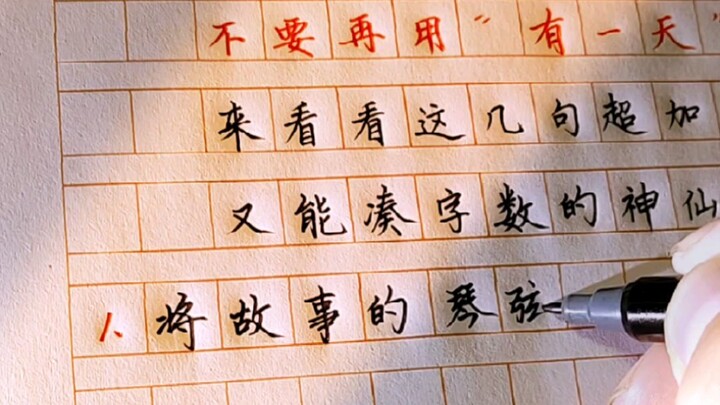 不要再用“有一天”
来看看这几句超加
又能凑字数的神仙
1、将故事的琴弦